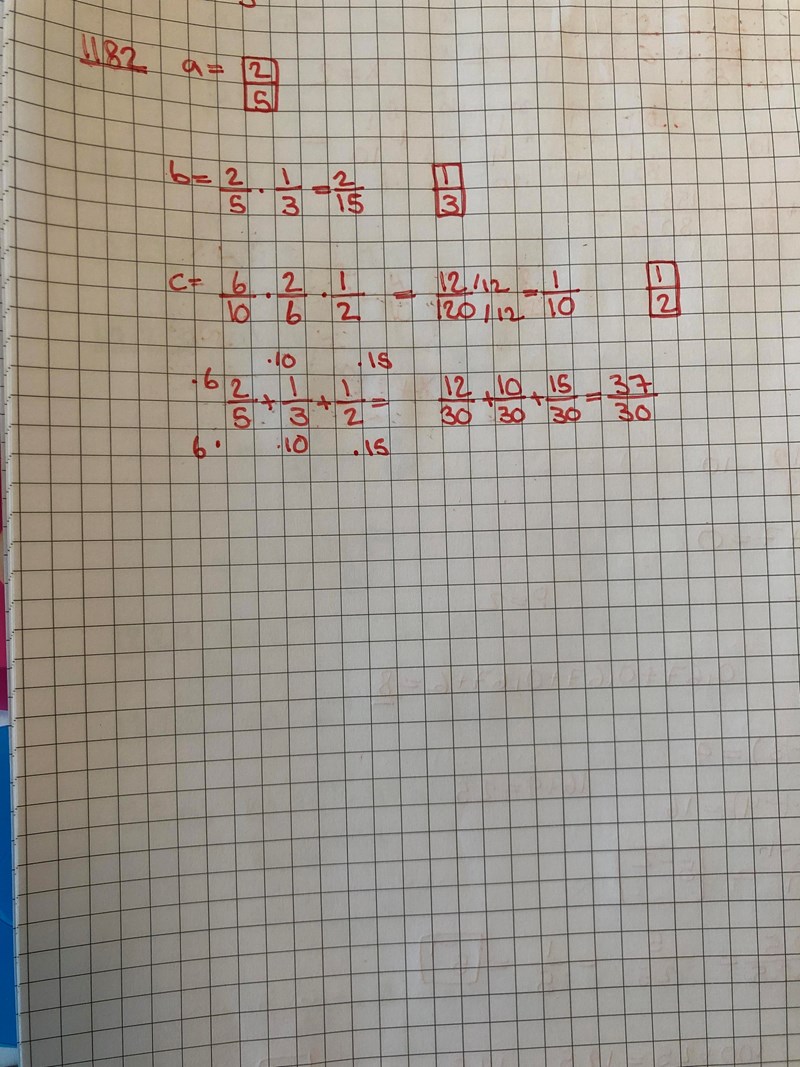 1182 a = 2/5
b = 2/5 · 1/3 = 2/15 1/3
c = 6/10 · 2/6 · 1/2 = 12/12 / 120/12 = 1/10 1/2
·6 ·10 ·15
2/5 + 1/3 + 1/2 = 12/30 + 10/30 + 15/30 = 37/30
6· ·10 ·15